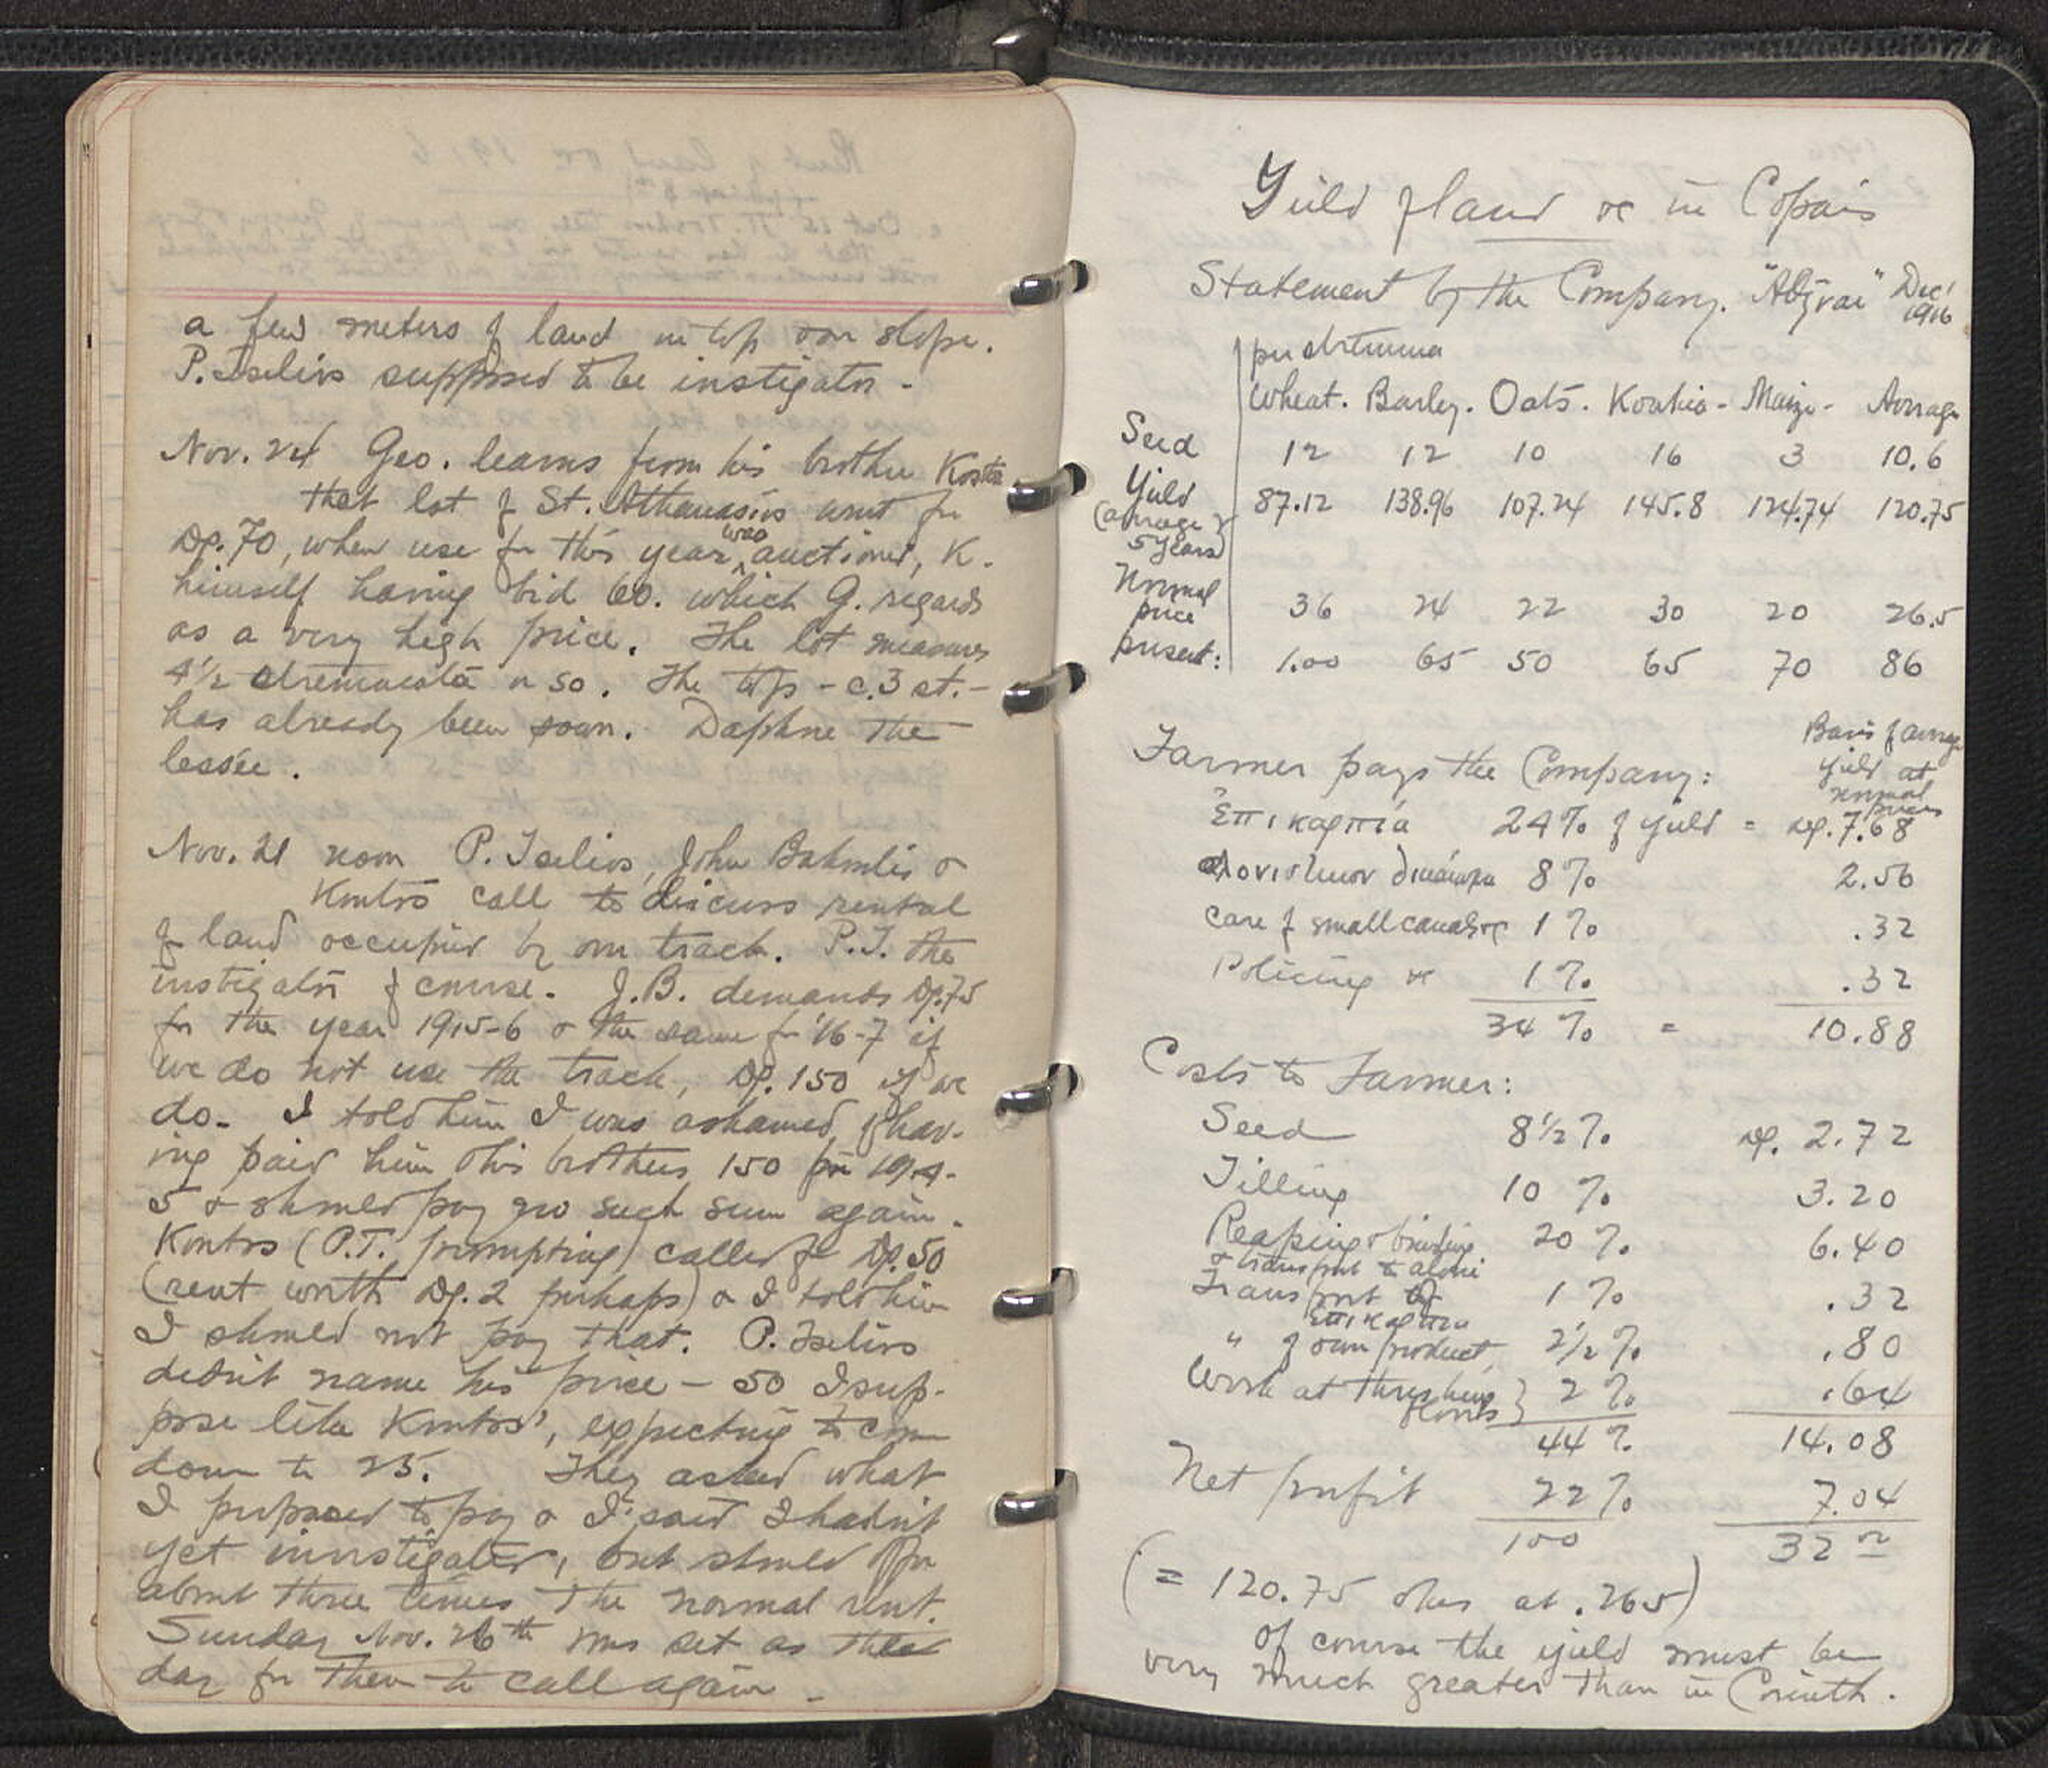 a few meters of land on top our slope.
P. Tselios supposed to be instigator -
Nov. 24 Geo. learns from his brother Kosta
that lot of St. Athanasios went for
Δρ. 70, when use for this year was auctioned, K.
himself having bid 60. which G. regards
as a very high price. The lot measures
4½ stremmata or so. The top - c. 3 st. -
has already been sown. Daphne the
lessee.
Nov. 21 noon P. Tselios, John &
Kontos call to discuss rental
of land occupied by our track. P.T. the
instigator of course. J.B. demands Δρ. 75
for the year 1915-6 & the same for '16-7 if
we do not use the track, Δρ. 150 if we
do. I told him I was ashamed of hav-
ing paid him & his brothers 150 for 1914-
5 & should pay no such sum again.
Kontos (P.T. prompting) called for Δρ. 50
(rent worth Δρ. 2 perhaps) & I told him
I should not pay that. P. Tselios
didn't name his price - 50 I sup-
pose like Kontos', expecting to come
down to 25. They asked what
I proposed to pay & I said I hadn't
yet investigated, but should offer
about three times the normal rent.
Sunday Nov. 26th was set as the
day for them to call again -
Yield of land &c in Copais
Statement by the Company. Dec' 1916
per stremma
Wheat. Barley. Oats. Maize - Average
Seed 12 12 10 16 3 10.6
Yield (average of 5 years) 87.12 138.96 107.24 145.8 124.74 120.75
Normal price 36 24 22 30 20 26.5
present: 1.00 65 50 65 70 86
Basis of average yield at normal prices
Farmer pays the Company:
Ἐπικαρπία 24% of yield = Δρ. 7.68
δικαίωμα 8% 2.56
care of small canals &c 1% .32
Policing &c 1% .32
34% = 10.88
Costs to Farmer:
Seed 8½% Δρ. 2.72
Tilling 10% 3.20
Reaping & binding & transport to aloni 20% 6.40
Transport of ἐπικαρπία 1% .32
" of own product, 2½% .80
Work at threshing floors } 2% .64
44% 14.08
Net profit 22% 7.04
100 32 00
(= 120.75 okes at .265)
Of course the yield must be
very much greater than in Corinth.